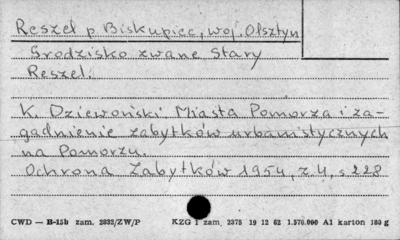 Reszel p. Biskupiec, woj. Olsztyn
Grodzisko zwane Stary
Reszel.
K. Dziewoński Miasta Pomorza i za-
gadnienie zabytków urbanistycznych
na Pomorzu.
Ochrona Zabytków 1954, z. 4, s 228
CWD — B-15b zam. 2832/ZW/P KZG 1 zam. 2375 19 12 62 1.570.000 A1 karton 180 g